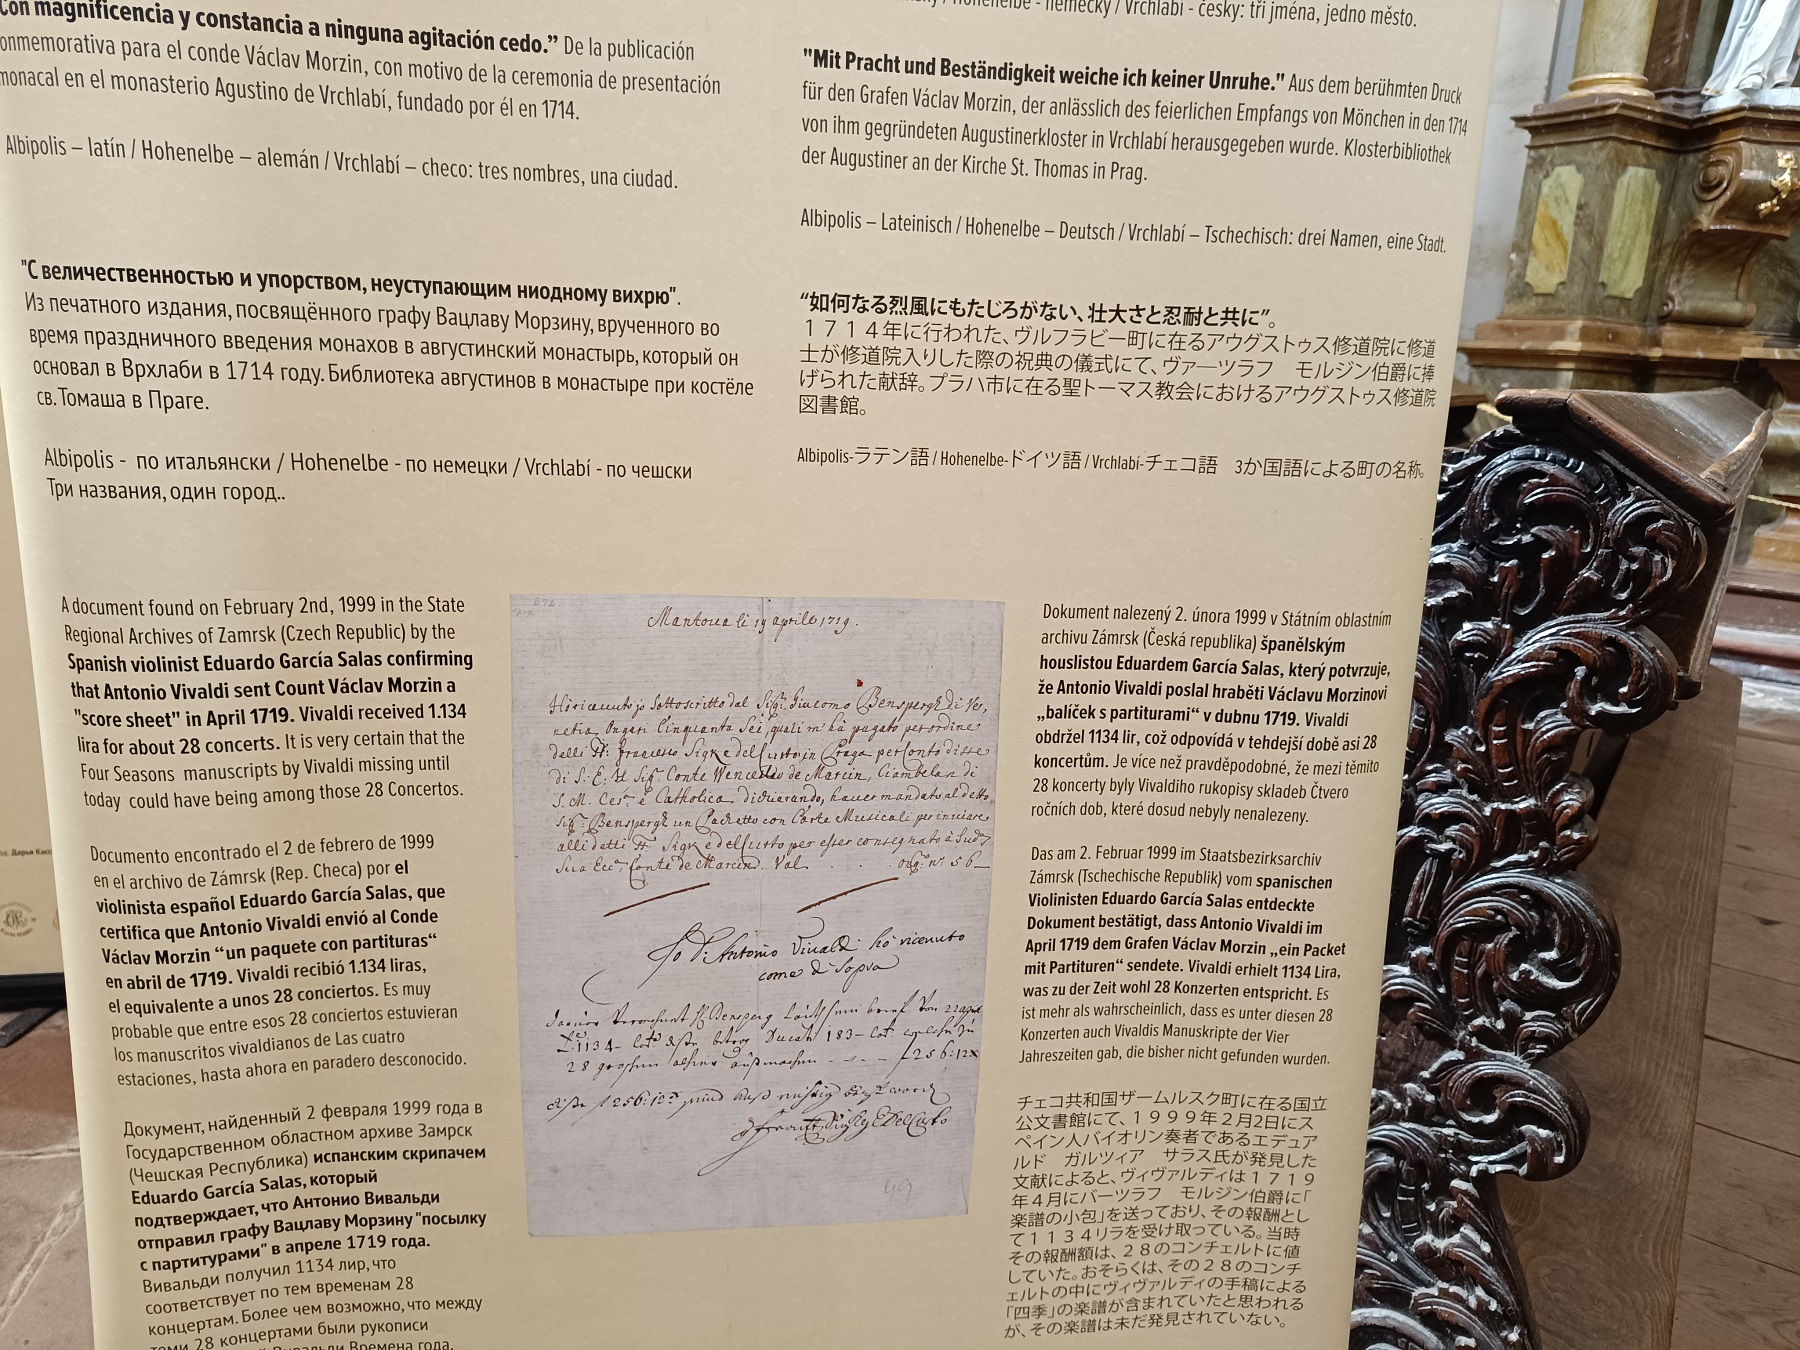 Con magnificencia y constancia a ninguna agitación cedo.” De la publicación
onmemorativa para el conde Václav Morzin, con motivo de la ceremonia de presentación
monacal en el monasterio Agustino de Vrchlabí, fundado por él en 1714.
Albipolis – latín / Hohenelbe – alemán / Vrchlabí – checo: tres nombres, una ciudad.
"С величественностью и упорством, неуступающим ниодному вихрю".
Из печатного издания, посвящённого графу Вацлаву Морзину, врученного во
время праздничного введения монахов в августинский монастырь, который он
основал в Врхлаби в 1714 году. Библиотека августинов в монастыре при костёле
св. Томаша в Праге.
Albipolis - по итальянски / Hohenelbe - по немецки / Vrchlabí - по чешски
Три названия, один город..
/ Hohenelbe - německy / Vrchlabí - česky: tři jména, jedno město.
"Mit Pracht und Beständigkeit weiche ich keiner Unruhe." Aus dem berühmten Druck
für den Grafen Václav Morzin, der anlässlich des feierlichen Empfangs von Mönchen in den 1714
von ihm gegründeten Augustinerkloster in Vrchlabí herausgegeben wurde. Klosterbibliothek
der Augustiner an der Kirche St. Thomas in Prag.
Albipolis – Lateinisch / Hohenelbe – Deutsch / Vrchlabí – Tschechisch: drei Namen, eine Stadt.
“如何なる烈風にもたじろがない、壮大さと忍耐と共に”。
１７１４年に行われた、ヴルフラビー町に在るアウグストゥス修道院に修道
士が修道院入りした際の祝典の儀式にて、ヴァ―ツラフ　モルジン伯爵に捧
げられた献辞。プラハ市に在る聖トーマス教会におけるアウグストゥス修道院
図書館。
Albipolis-ラテン語 / Hohenelbe-ドイツ語 / Vrchlabí-チェコ語　3か国語による町の名称。
A document found on February 2nd, 1999 in the State
Regional Archives of Zamrsk (Czech Republic) by the
Spanish violinist Eduardo García Salas confirming
that Antonio Vivaldi sent Count Václav Morzin a
"score sheet" in April 1719. Vivaldi received 1.134
lira for about 28 concerts. It is very certain that the
Four Seasons manuscripts by Vivaldi missing until
today could have being among those 28 Concertos.
Documento encontrado el 2 de febrero de 1999
en el archivo de Zámrsk (Rep. Checa) por el
violinista español Eduardo García Salas, que
certifica que Antonio Vivaldi envió al Conde
Václav Morzin “un paquete con partituras“
en abril de 1719. Vivaldi recibió 1.134 liras,
el equivalente a unos 28 conciertos. Es muy
probable que entre esos 28 conciertos estuvieran
los manuscritos vivaldianos de Las cuatro
estaciones, hasta ahora en paradero desconocido.
Документ, найденный 2 февраля 1999 года в
Государственном областном архиве Замрск
(Чешская Республика) испанским скрипачем
Eduardo García Salas, который
подтверждает, что Антонио Вивальди
отправил графу Вацлаву Морзину "посылку
с партитурами" в апреле 1719 года.
Вивальди получил 1134 лир, что
соответствует по тем временам 28
концертам. Более чем возможно, что между
теми 28 концертами были рукописи
Вивальди Времена года,
Mantoua li 19 aprile 1719.
Hò riceuuto jo sottoscritto dal Sigr: Giacomo Bensperg di Ve,
netia Ongari Cinquanta Sei, quali m'hà pagato per ordine
delli SS: Francesco Sigr e del Curto in Praga per Conto disse
di S. E. il Sigr. Conte Wenceslao de Marcin, Ciambelan di
S. M. Ces.a e Catholica dichiarando, hauer mandato al detto
Sigr: Bensperg un Pachetto con Carte Musicali per inuiare
alli detti SS Sigr e del Curto per esser consegnato à Sud.a
Sua Ecc.a Conte de Marcin. Val . . ong.ri n.o 56
Jo D. Antonio Vivaldi hò riceuuto
come di Sopra
49
Dokument nalezený 2. února 1999 v Státním oblastním
archivu Zámrsk (Česká republika) španělským
houslistou Eduardem García Salas, který potvrzuje,
že Antonio Vivaldi poslal hraběti Václavu Morzinovi
„balíček s partiturami“ v dubnu 1719. Vivaldi
obdržel 1134 lir, což odpovídá v tehdejší době asi 28
koncertům. Je více než pravděpodobné, že mezi těmito
28 koncerty byly Vivaldiho rukopisy skladeb Čtvero
ročních dob, které dosud nebyly nenalezeny.
Das am 2. Februar 1999 im Staatsbezirksarchiv
Zámrsk (Tschechische Republik) vom spanischen
Violinisten Eduardo García Salas entdeckte
Dokument bestätigt, dass Antonio Vivaldi im
April 1719 dem Grafen Václav Morzin „ein Packet
mit Partituren“ sendete. Vivaldi erhielt 1134 Lira,
was zu der Zeit wohl 28 Konzerten entspricht. Es
ist mehr als wahrscheinlich, dass es unter diesen 28
Konzerten auch Vivaldis Manuskripte der Vier
Jahreszeiten gab, die bisher nicht gefunden wurden.
チェコ共和国ザームルスク町に在る国立
公文書館にて、１９９９年２月2日にス
ペイン人バイオリン奏者であるエデュア
ルド　ガルツィア　サラス氏が発見した
文献によると、ヴィヴァルディは１７１９
年４月にバーツラフ　モルジン伯爵に「
楽譜の小包」を送っており、その報酬とし
て１１３４リラを受け取っている。当時
その報酬額は、２８のコンチェルトに値
していた。おそらくは、その２８のコンチ
ェルトの中にヴィヴァルディの手稿による
「四季」の楽譜が含まれていたと思われる
が、その楽譜は未だ発見されていない。